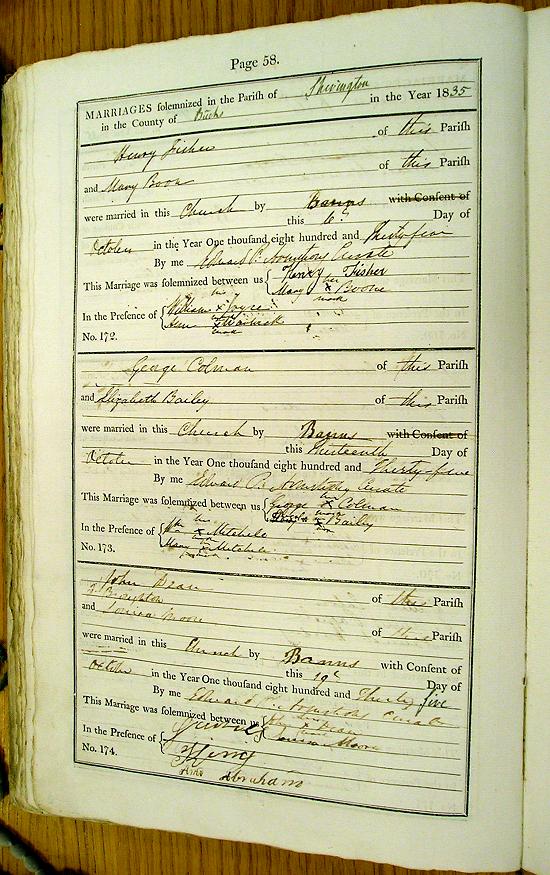 Page 58.
MARRIAGES solemnized in the Parish of Shevington
in the County of Bucks in the Year 1835
Henry Fisher of this Parish
and Mary Boon of this Parish
were married in this Church by Banns with Consent of
this 6 Day of
October in the Year One thousand eight hundred and Thirty five
By me Edward Curate
This Marriage was solemnized between us { Henry Fisher
Mary x Boone
mark
In the Presence of { William x Joyce
Ann x
mark
No. 172.
George Colman of this Parish
and Elizabeth Bailey of this Parish
were married in this Church by Banns with Consent of
this Day of
October in the Year One thousand eight hundred and Thirty-five
By me Edward Curate
This Marriage was solemnized between us { George x Colman
x Bailey
In the Presence of { x Mitchell
x Mitchell
No. 173.
John Dean of this Parish
and Louisa Moore of this Parish
were married in this Church by Banns with Consent of
this 19 Day of
October in the Year One thousand eight hundred and Thirty five
By me Edward Curate
This Marriage was solemnized between us { Dean
Louisa Moore
In the Presence of {
Abraham
No. 174.